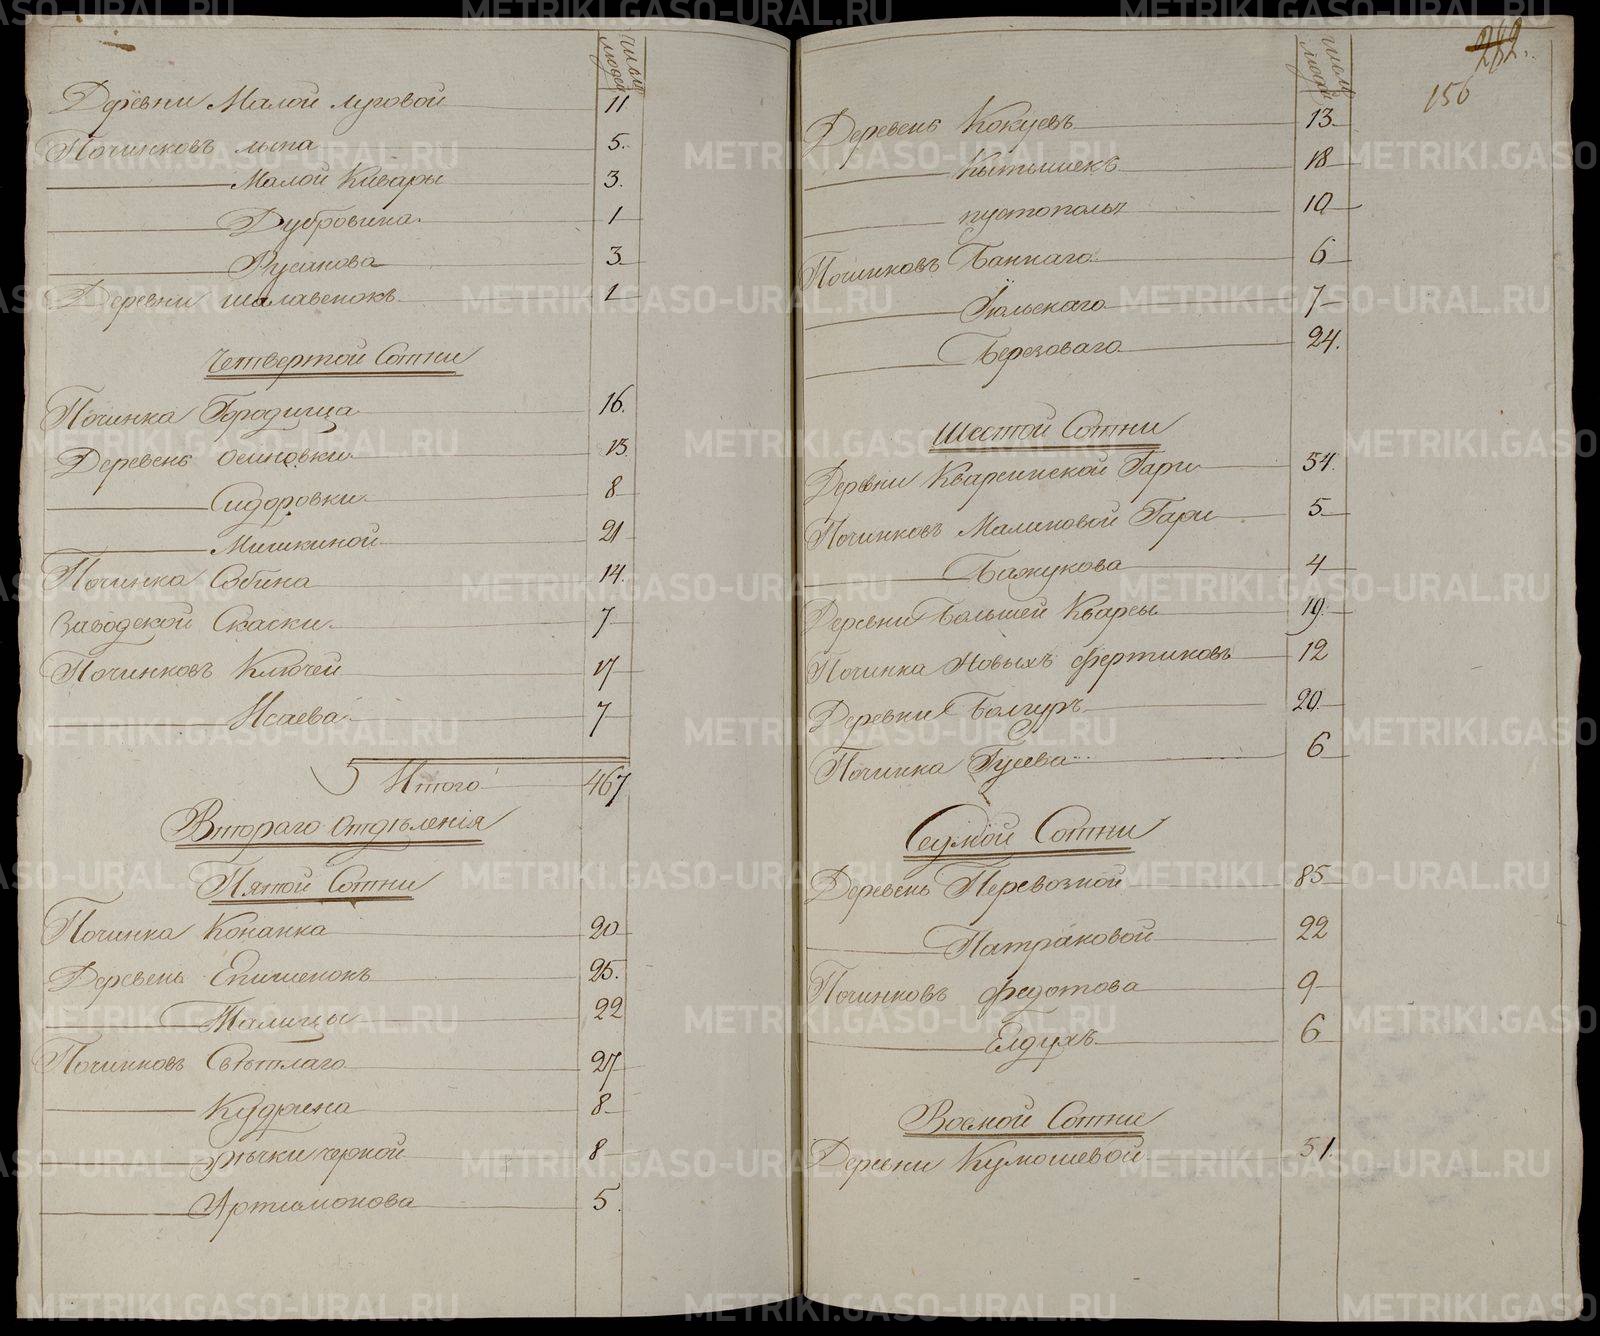 число людей
Деревни Малой луговой 11
Починковъ лыпа 5.
Малой Кивары 3.
Дубровина 1
Русинова 3
Деревни шалавенокъ 1
Четвертой Сотни
Починка Городища 16.
Деревень Осиновки 13.
Сидоровки 8
Мишкиной 21
Починка Собина 14.
Заводской Скаски 7
Починковъ Ключей 17
Исаева 7
Итого 467
Втораго отдѣленія
Пятой Сотни
Починка Конанка 20
Деревень Епишенокъ 25.
Талицы 22
Починковъ Свѣтлаго 27
Кудрина 8
Рѣчки черной 8
Артимонова 5.
282.
156
число людей
Деревень Кокуевъ 13
Кытышекъ 18
пустополья 10
Починковъ Баннаго 6
Іюльскаго 7
Березоваго 24.
Шестой Сотни
Деревни Кварсинской Гари 54.
Починковъ Малиновой Гари 5
Бажукова 4
Деревни Большей Кварсы 19.
Починка Новыхъ фертиковъ 12
Деревни Болгуръ 20.
Починка Гусева 6
Седмой Сотни
Деревень Перевозной 85
Патраковой 22
Починковъ федотова 9
Елдухъ 6
Восмой Сотни
Деревни Кулюшевой 51.
METRIKI.GASO-URAL.RU